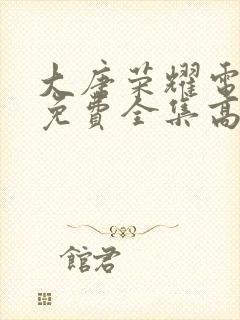 大唐荣耀電
免費全集高
館君